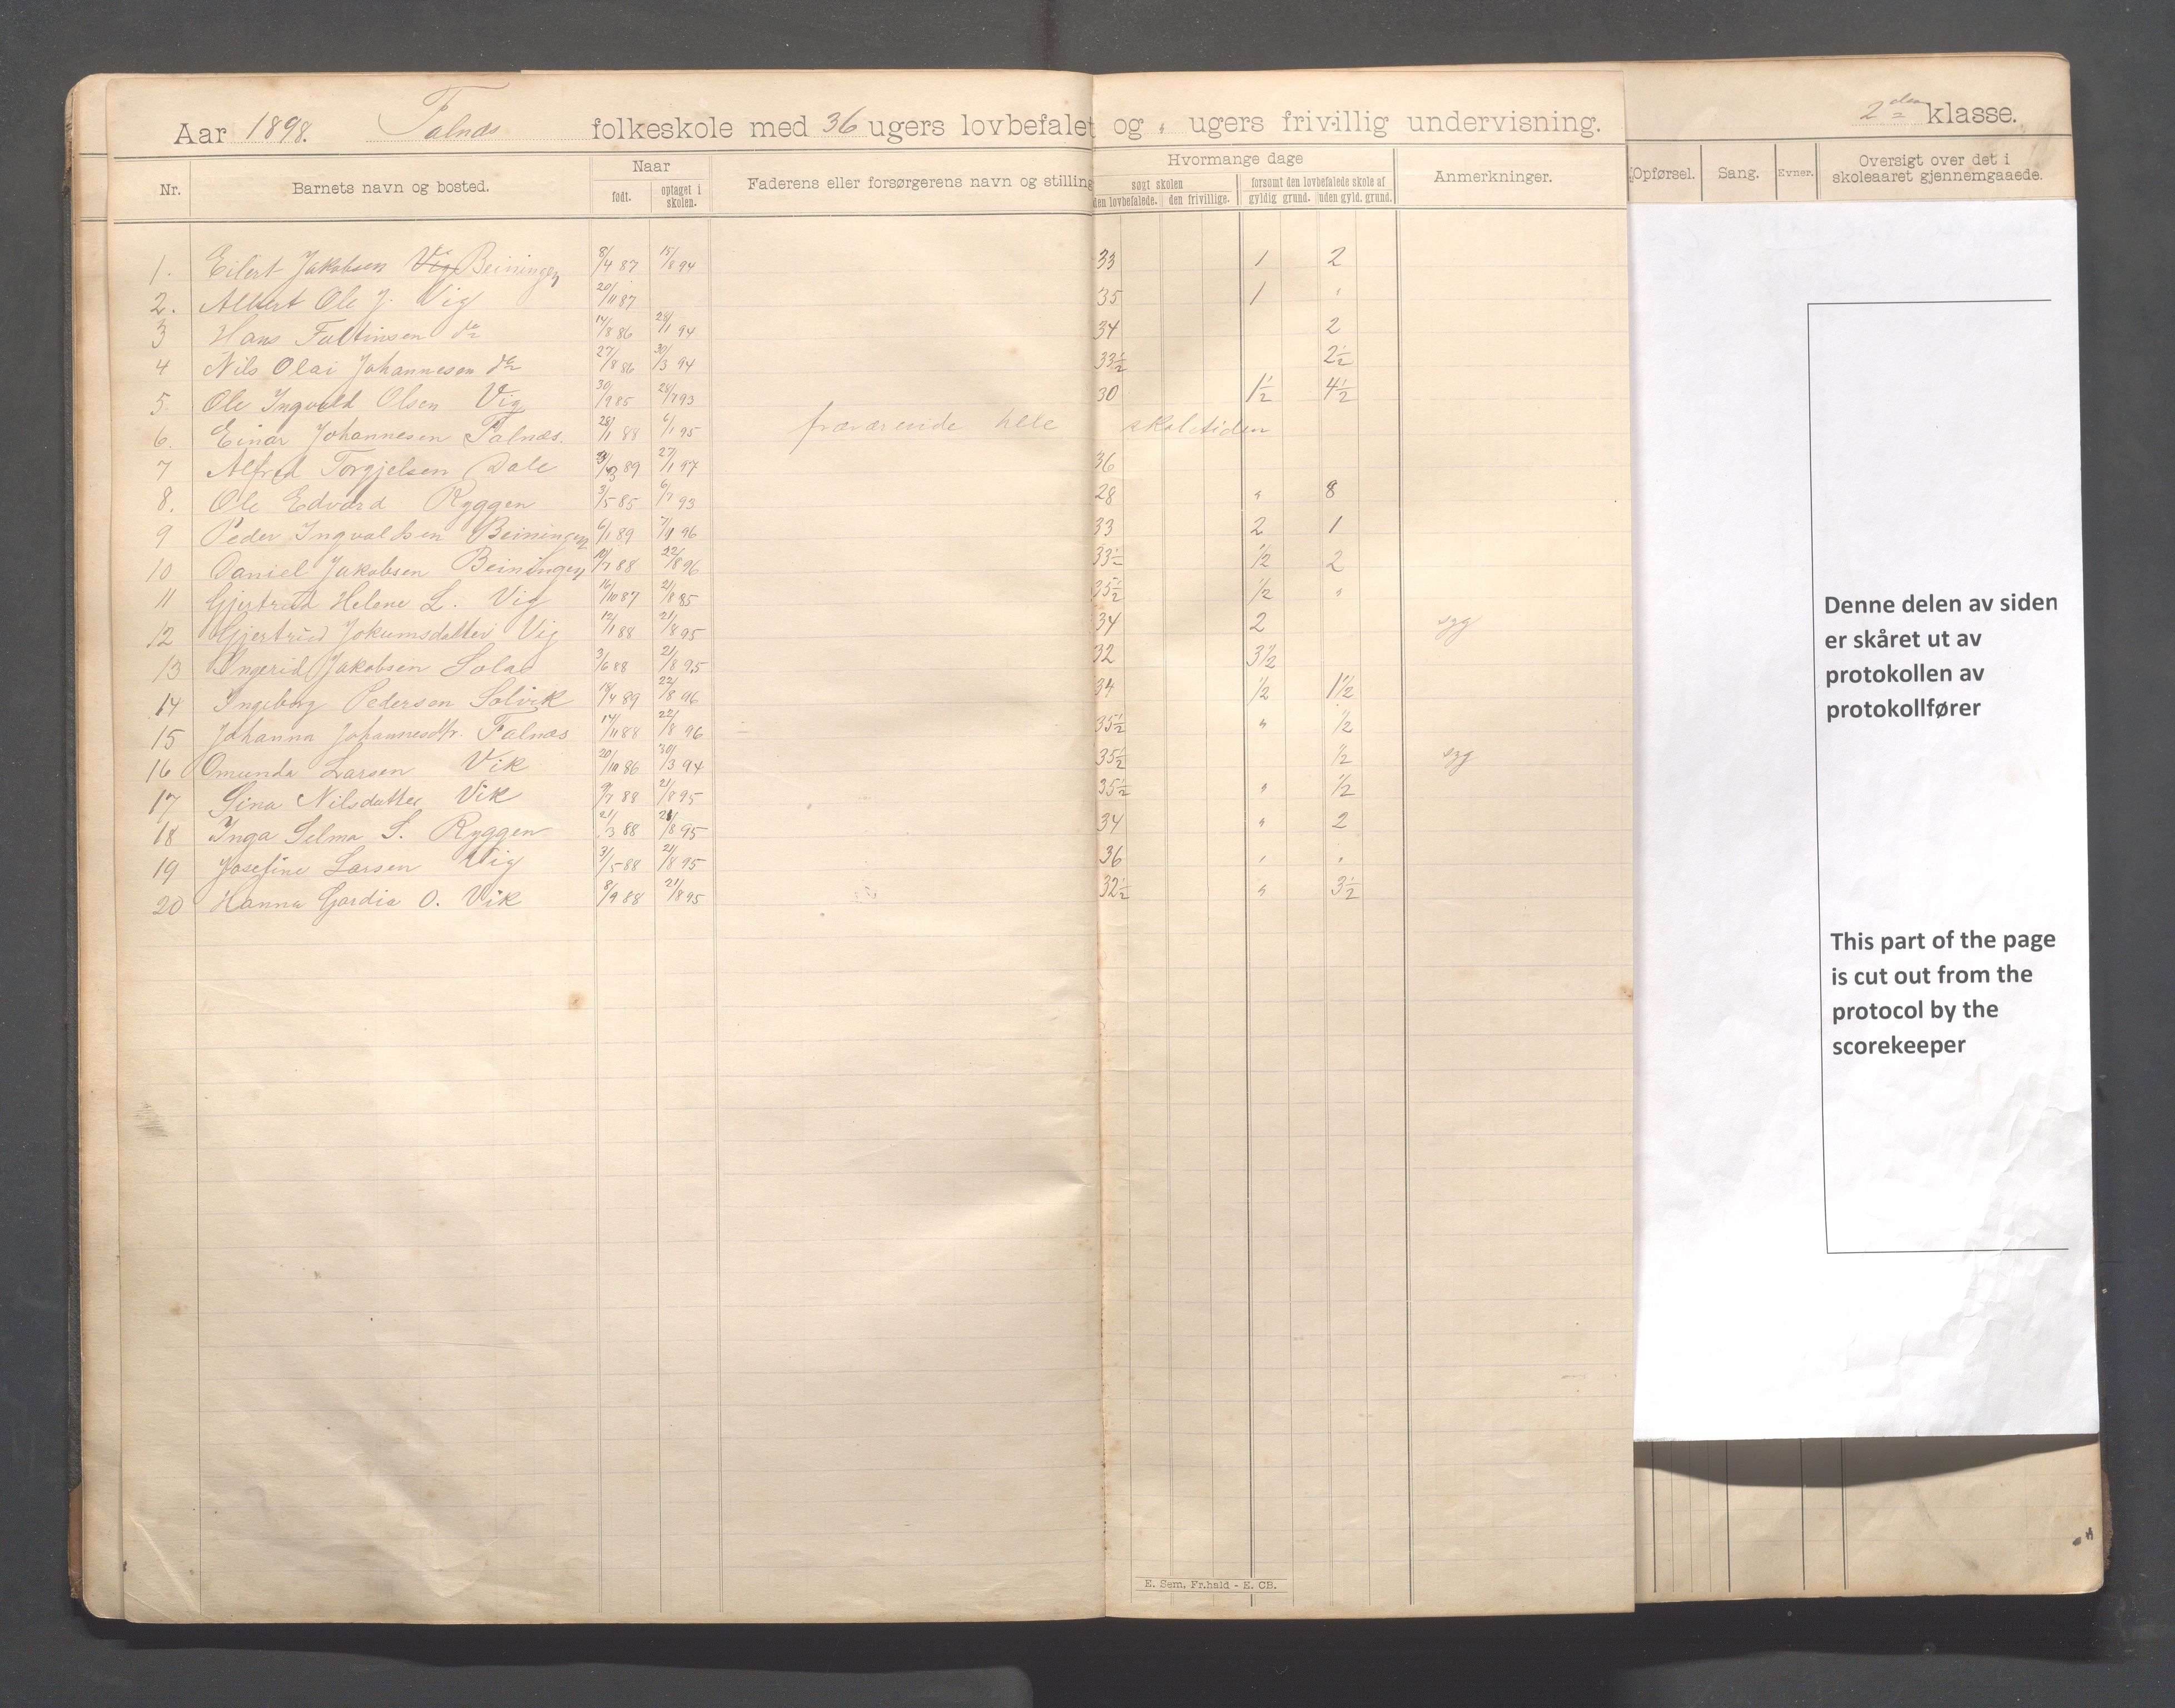 Aar 1898. Falnæs folkeskole med 36 ugers lovbefalet og " ugers frivillig undervisning. 2den klasse.
Nr. Barnets navn og bosted. Naar født. optaget i skolen. Faderens eller forsørgerens navn og stilling Hvormange dage søgt skolen den lovbefalede. den frivillige. forsømt den lovbefalede skole af gyldig grund. uden gyld. grund. Anmerkninger. Opførsel. Sang. Evner. Oversigt over det i skoleaaret gjennemgaaede.
1. Eilert Jakobsen Vig Beiningen 8/4 87 15/8 94 33 1 2
2. Albert Ole J. Vig 20/11 87 35 1 "
3 Hans Faltinsen do 14/8 86 29/1 94 34 2
4 Nils Olai Johannesen do 27/8 86 30/3 94 33½ 2½
5. Ole Ingvald Olsen Vig 30/9 85 28/7 93 30 1½ 4½
6. Einar Johannesen Falnæs. 28/1 88 6/1 95 fraværende hele skoletiden
7 Alfred Torgjelsen Dale 89 27/1 97 36
8. Ole Edvard Ryggen 3/5 85 6/7 93 28 " 8
9 Peder Ingvaldsen Beiningen 6/1 89 7/1 96 33 2 1
10 Daniel Jakobsen Beiningen 19/7 88 22/8 96 33½ ½ 2
11 Gjertrud Helene L. Vig 16/10 87 21/8 85 35½ ½ "
12 Gjertrud Jokumsdatter Vig 12/1 88 21/8 95 34 2 syg
13 Ingerid Jakobsen Sola 3/6 88 21/8 95 32 3½
14 Ingeborg Pedersen Solvik 18/4 89 22/8 96 34 ½ 1½
15 Johanna Johannesdtr. Falnæs 14/11 88 22/8 96 35½ " ½
16 Omunda Larsen Vik 20/10 86 30/3 94 35½ ½ syg
17 Sina Nilsdatter Vik 9/7 88 21/8 95 35½ " ½
18 Inga Selma S. Ryggen 21/3 88 21/8 95 34 " 2
19 Josefine Larsen Vig 31/5 88 21/8 95 36 " "
20 Hanna Gardia O. Vik 8/9 88 21/8 95 32½ " 3½
E. Sem, Fr.hald - E. CB.
Denne delen av siden
er skåret ut av
protokollen av
protokollfører
This part of the page
is cut out from the
protocol by the
scorekeeper